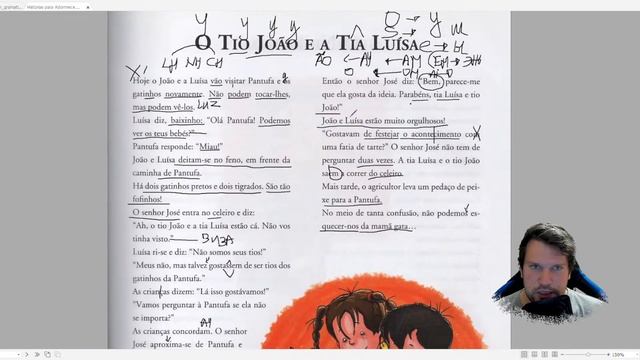 Histórias para Adormecer...
O TIO JOÃO E A TIA LUÍSA
LH NH CH
ÃO
AM
Hoje o João e a Luísa vão visitar Pantufa e os
gatinhos novamente. Não podem tocar-lhes,
mas podem vê-los.
Luísa diz, baixinho: “Olá Pantufa! Podemos
ver os teus bebés?”
Pantufa responde: “Miau!”
João e Luísa deitam-se no feno, em frente da
caminha de Pantufa.
Há dois gatinhos pretos e dois tigrados. São tão
fofinhos!
O senhor José entra no celeiro e diz:
“Ah, o tio João e a tia Luísa estão cá. Não vos
tinha visto.”
Luísa ri-se e diz: “Não somos seus tios!”
“Meus não, mas talvez gostassem de ser tios dos
gatinhos da Pantufa.”
As crianças dizem: “Lá isso gostávamos!”
“Vamos perguntar à Pantufa se ela não
se importa?”
As crianças concordam. O senhor
José aproxima-se de Pantufa e
Então o senhor José diz: “Bem, parece-me
que ela gosta da ideia. Parabéns, tia Luísa e tio
João!”
João e Luísa estão muito orgulhosos!
“Gostavam de festejar o acontecimento com
uma fatia de tarte?” O senhor José não tem de
perguntar duas vezes. A tia Luísa e o tio João
saem a correr do celeiro.
Mais tarde, o agricultor leva um pedaço de pei-
xe para a Pantufa.
No meio de tanta confusão, não podemos es-
quecer-nos da mamã gata...
150%